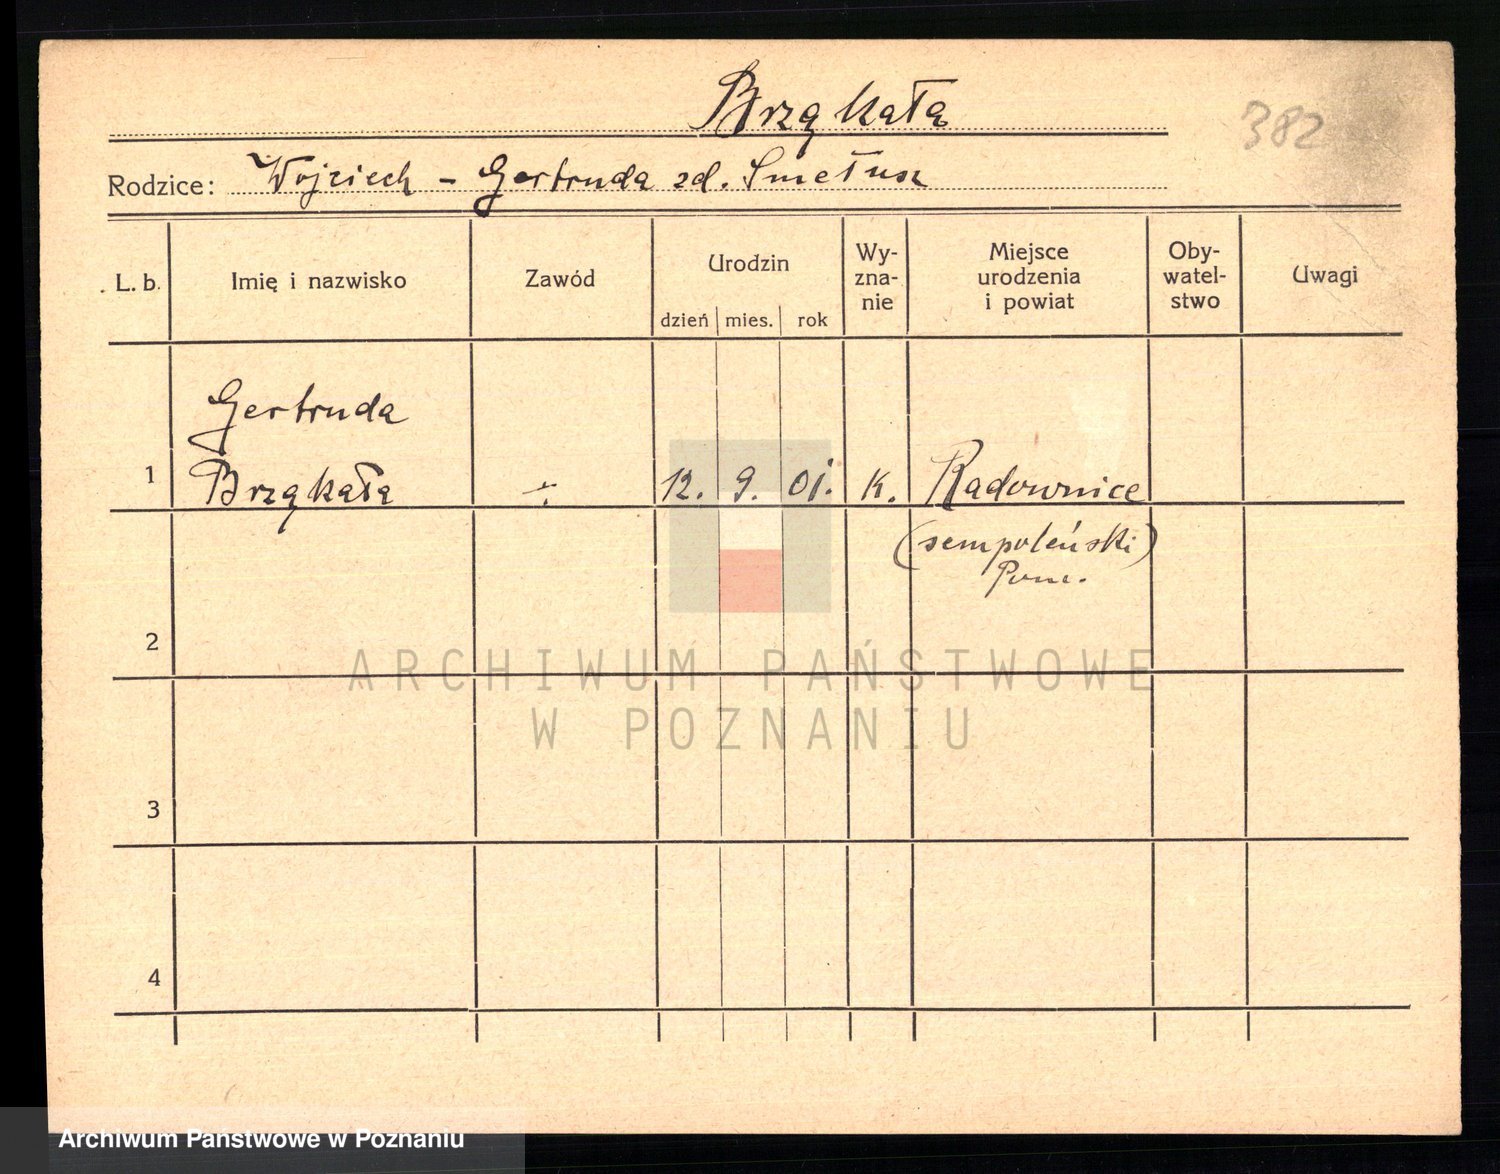 Brząkała
382
Rodzice: Wojciech - Gertruda zd. Smełusz
L. b. Imię i nazwisko Zawód Urodzin dzień mies. rok Wy-zna-nie Miejsce urodzenia i powiat Oby-watel-stwo Uwagi
Gertruda
1 Brząkała ÷ 12. 9. 01. K. Radownice
(sempoleński)
Pom.
2
ARCHIWUM PAŃSTWOWE
W POZNANIU
3
4
Archiwum Państwowe w Poznaniu